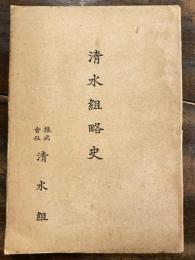 清水組略史
株式
会社
清水組